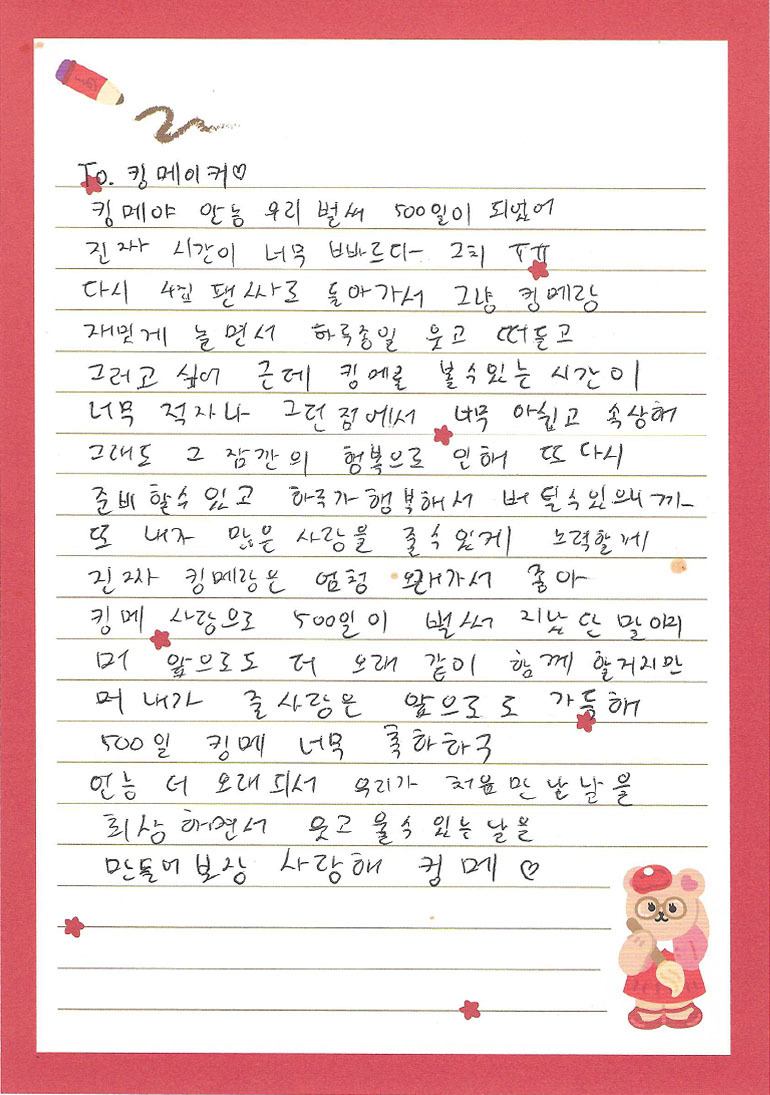 To. 킹메이커♡
킹메야 안농 우리 벌써 500일이 되었어
진짜 시간이 너무 빠르다 그치 ㅠㅠ
다시 4집 팬싸로 돌아가서 그냥 킹메랑
재밌게 놀면서 하루종일 웃고 떠들고
그러고 싶어 근데 킹메를 볼수있는 시간이
너무 적자나 그런 점에서 너무 아쉽고 속상해
그래도 그 잠깐의 행복으로 인해 또 다시
준비 할수 있고 하루가 행복해서 버틸수있으니까
또 내가 많은 사랑을 줄수있게 노력할께
진짜 킹메랑은 엄청 오래가서 좋아
킹메 사랑으로 500일이 벌써 지났단 말이지
머 앞으로도 더 오래 같이 함께 할거지만
머 내가 줄사랑은 앞으로도 가득해
500일 킹메 너무 축하하구
언능 더 오래되서 우리가 처음만난날을
회상하면서 웃고 울수 있는날을
만들어보장 사랑해 킹메♡